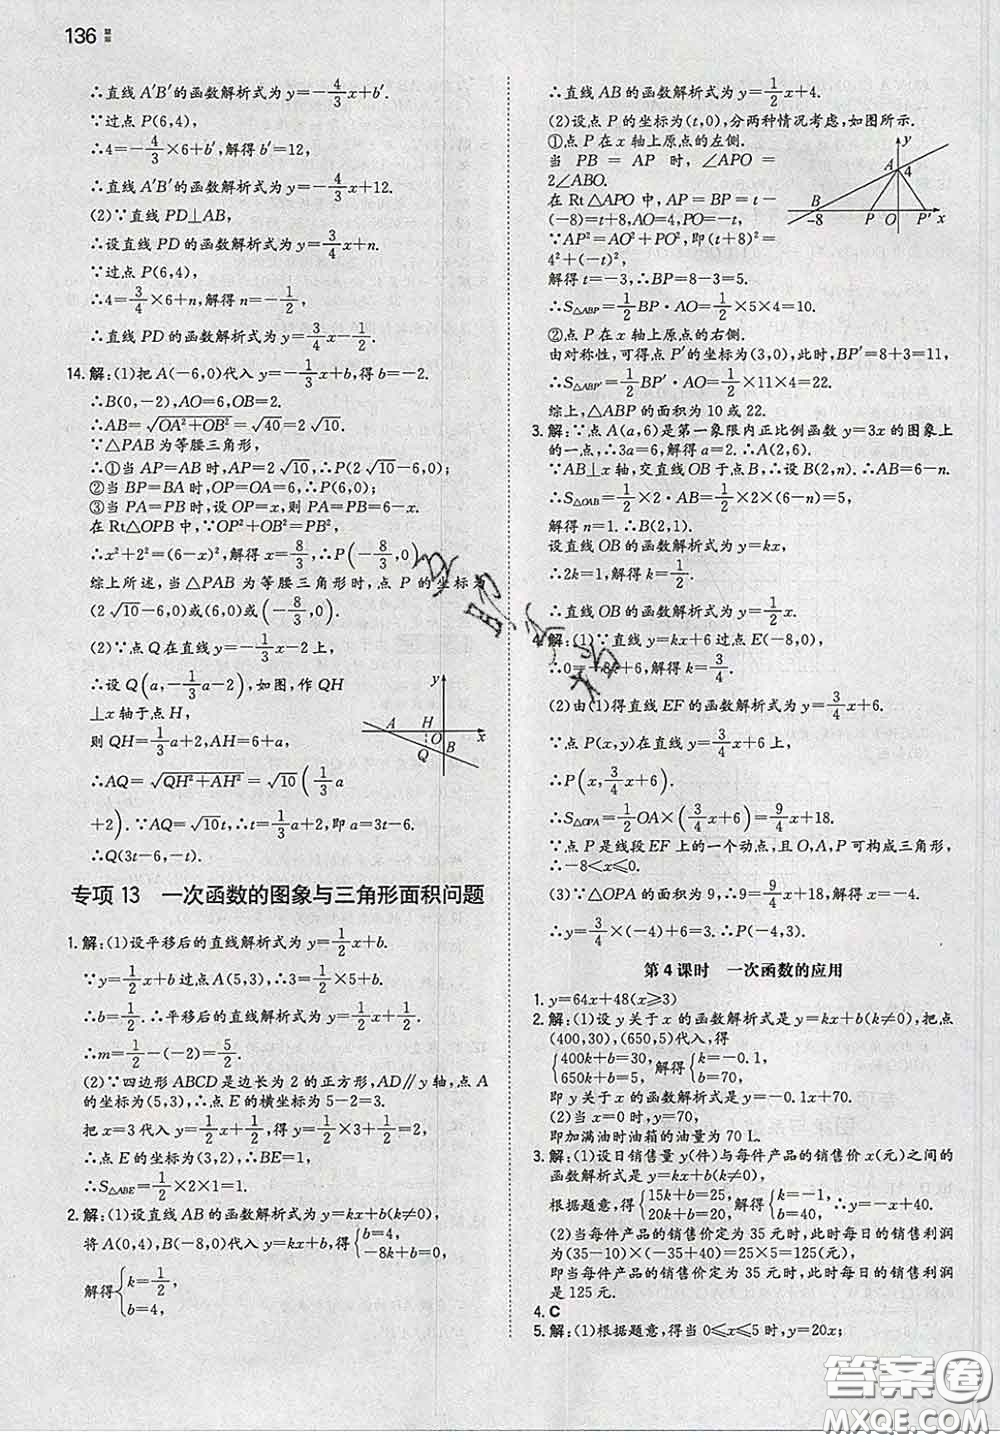 136
∴直线 A′B′的函数解析式为 y=-4/3x+b′.
∵过点 P(6,4),
∴4=-4/3×6+b′,解得 b′=12,
∴直线 A′B′的函数解析式为 y=-4/3x+12.
(2)∵直线 PD⊥AB,
∴设直线 PD 的函数解析式为 y=3/4x+n.
∵过点 P(6,4),
∴4=3/4×6+n,解得 n=-1/2,
∴直线 PD 的函数解析式为 y=3/4x-1/2.
14.解:(1)把 A(-6,0)代入 y=-1/3x+b,得 b=-2.
∴B(0,-2),AO=6,OB=2.
∴AB=√(OA²+OB²)=√40=2√10.
∵△PAB 为等腰三角形,
∴①当 AP=AB 时,AP=2√10,∴P(2√10-6,0);
②当 BP=BA 时,OP=OA=6,∴P(6,0);
③当 PA=PB 时,设 OP=x,则 PA=PB=6-x.
在 Rt△OPB 中,∵OP²+OB²=PB²,
∴x²+2²=(6-x)²,解得 x=8/3,∴P(-8/3,0).
综上所述,当△PAB 为等腰三角形时,点 P 的坐标为
(2√10-6,0)或(6,0)或(-8/3,0).
(2)∵点 Q 在直线 y=-1/3x-2 上,
∴设 Q(a,-1/3a-2),如图,作 QH
⊥x 轴于点 H,
则 QH=1/3a+2,AH=6+a,
∴AQ=√(QH²+AH²)=√10(1/3a
+2).∵AQ=√10t,∴t=1/3a+2,即 a=3t-6.
∴Q(3t-6,-t).
y
A H
O x
Q B
专项 13 一次函数的图象与三角形面积问题
1.解:(1)设平移后的直线解析式为 y=1/2x+b.
∵y=1/2x+b 过点 A(5,3),∴3=1/2×5+b,
∴b=1/2.∴平移后的直线解析式为 y=1/2x+1/2.
∴m=1/2-(-2)=5/2.
(2)∵四边形 ABCD 是边长为 2 的正方形,AD∥y 轴,点 A
的坐标为(5,3),∴点 E 的横坐标为 5-2=3.
把 x=3 代入 y=1/2x+1/2,得 y=1/2×3+1/2=2,
∴点 E 的坐标为(3,2),∴BE=1,
∴S△ABE=1/2×2×1=1.
2.解:(1)设直线 AB 的函数解析式为 y=kx+b(k≠0),
将 A(0,4),B(-8,0)代入 y=kx+b,得{b=4, -8k+b=0,
解得{k=1/2, b=4,
∴直线 AB 的函数解析式为 y=1/2x+4.
(2)设点 P 的坐标为(t,0),分两种情况考虑,如图所示.
①点 P 在 x 轴上原点的左侧.
当 PB=AP 时,∠APO=
2∠ABO.
在 Rt△APO 中,AP=BP=t-
(-8)=t+8,AO=4,PO=-t,
∵AP²=AO²+PO²,即(t+8)²=
4²+(-t)²,
解得 t=-3,∴BP=8-3=5.
∴S△ABP=1/2BP·AO=1/2×5×4=10.
②点 P 在 x 轴上原点的右侧.
由对称性,可得点 P′的坐标为(3,0),此时,BP′=8+3=11,
∴S△ABP′=1/2BP′·AO=1/2×11×4=22.
综上,△ABP 的面积为 10 或 22.
y
A 4
B
-8 P O P′ x
3.解:∵点 A(a,6)是第一象限内正比例函数 y=3x 的图象上
的一点,∴3a=6,解得 a=2.∴A(2,6).
∵AB⊥x 轴,交直线 OB 于点 B,∴设 B(2,n).∴AB=6-n.
∴S△OAB=1/2×2·AB=1/2×2×(6-n)=5,
解得 n=1.∴B(2,1).
设直线 OB 的函数解析式为 y=kx,
∴2k=1,解得 k=1/2.
∴直线 OB 的函数解析式为 y=1/2x.
4.解:(1)∵直线 y=kx+6 过点 E(-8,0),
∴0=-8k+6,解得 k=3/4.
(2)由(1)得直线 EF 的函数解析式为 y=3/4x+6.
∵点 P(x,y)在直线 y=3/4x+6 上,
∴P(x,3/4x+6).
∴S△OPA=1/2OA×(3/4x+6)=9/4x+18.
∵点 P 是线段 EF 上的一个动点,且 O,A,P 可构成三角形,
∴-8<x≤0.
(3)∵△OPA 的面积为 9,∴9/4x+18=9,解得 x=-4.
∴y=3/4×(-4)+6=3.∴P(-4,3).
第 4 课时 一次函数的应用
1.y=64x+48(x≥3)
2.解:(1)设 y 关于 x 的函数解析式是 y=kx+b(k≠0),把点
(400,30),(650,5)代入,得
{400k+b=30, 650k+b=5, 解得{k=-0.1, b=70,
即 y 关于 x 的函数解析式为 y=-0.1x+70.
(2)当 x=0 时,y=70,
即加满油时油箱的油量为 70 L.
3.解:(1)设日销售量 y(件)与每件产品的销售价 x(元)之间的
函数解析式是 y=kx+b(k≠0),
根据题意,得{15k+b=25, 20k+b=20, 解得{k=-1, b=40, ∴y=-x+40.
(2)当每件产品的销售价定为 35 元时,此时每日的销售利润
为(35-10)×(-35+40)=25×5=125(元),
即当每件产品的销售价定为 35 元时,此时每日的销售利润
是 125 元.
4.C
5.解:(1)根据题意,得当 0≤x≤5 时,y=20x;
答案圈
MXQE.COM